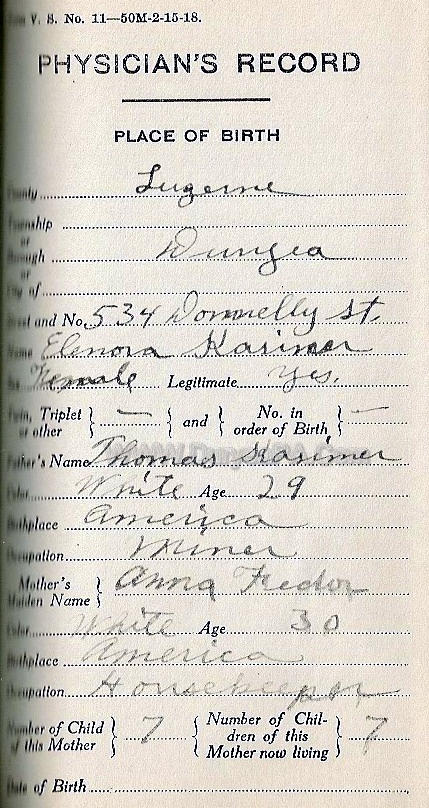 V. S. No. 11—50M-2-15-18.
PHYSICIAN'S RECORD
PLACE OF BIRTH
County Luzerne
Township
or
Borough Duryea
or
City of
Street and No. 534 Donnelly St.
Name Elenora Kasimer
Sex Female Legitimate yes.
Twin, Triplet or other } — { and } No. in order of Birth } —
Father's Name Thomas Kasimer
Color White Age 29
Birthplace America
Occupation Miner
Mother's Maiden Name } Anna Fredor
Color White Age 30
Birthplace America
Occupation Housekeeper
Number of Child of this Mother } 7 { Number of Children of this Mother now living } 7
Date of Birth